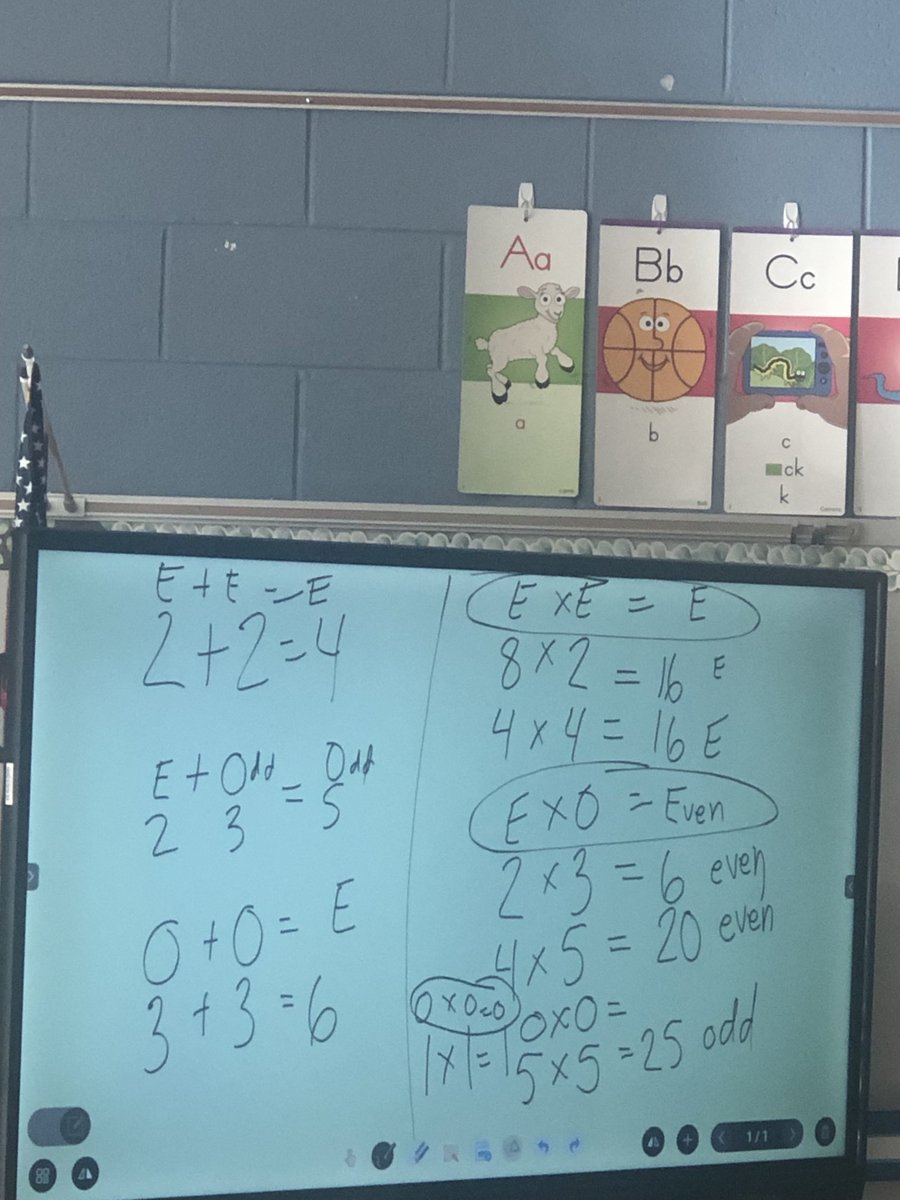 Aa
a
Bb
b
Cc
c
ck
k
E + E = E
2+2=4
E + Odd = Odd
2 3 5
O + O = E
3 + 3 = 6
E x E = E
8 x 2 = 16 E
4 x 4 = 16 E
E x O = Even
2 x 3 = 6 even
4 x 5 = 20 even
O x O = O
O x O =
1 x 1 = 1
5 x 5 = 25 odd
1/1